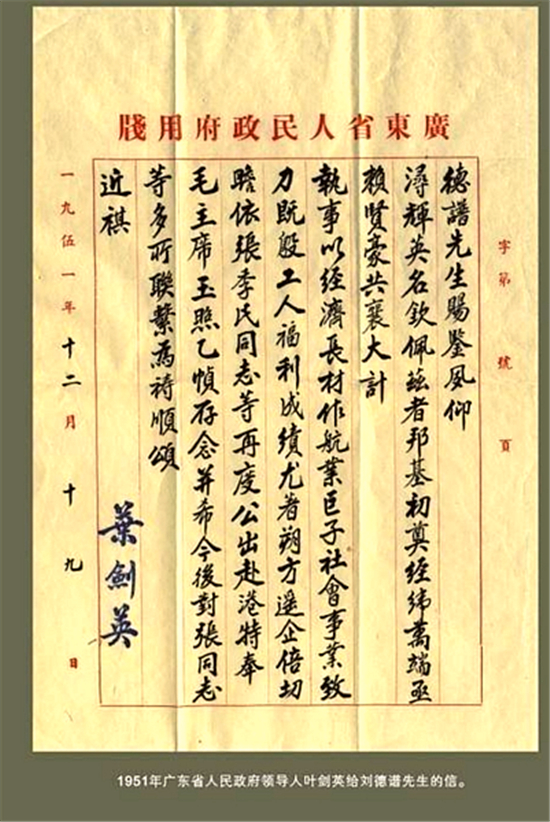 廣東省人民政府用牋
字第 號 頁
德譜先生賜鑒夙仰
潯輝英名欽佩茲者邦基初奠經緯萬端亟
賴賢豪共襄大計
執事以經濟長材作航業巨子社會事業致
力既殷工人福利成績尤著朔方遥企倍切
瞻依張季氏同志等再度公出赴港特奉
毛主席玉照乙幀存念并希今後對張同志
等多所聯繫為禱順頌
近祺
葉劍英
一九伍一年十二月十九日
1951年广东省人民政府领导人叶剑英给刘德谱先生的信。